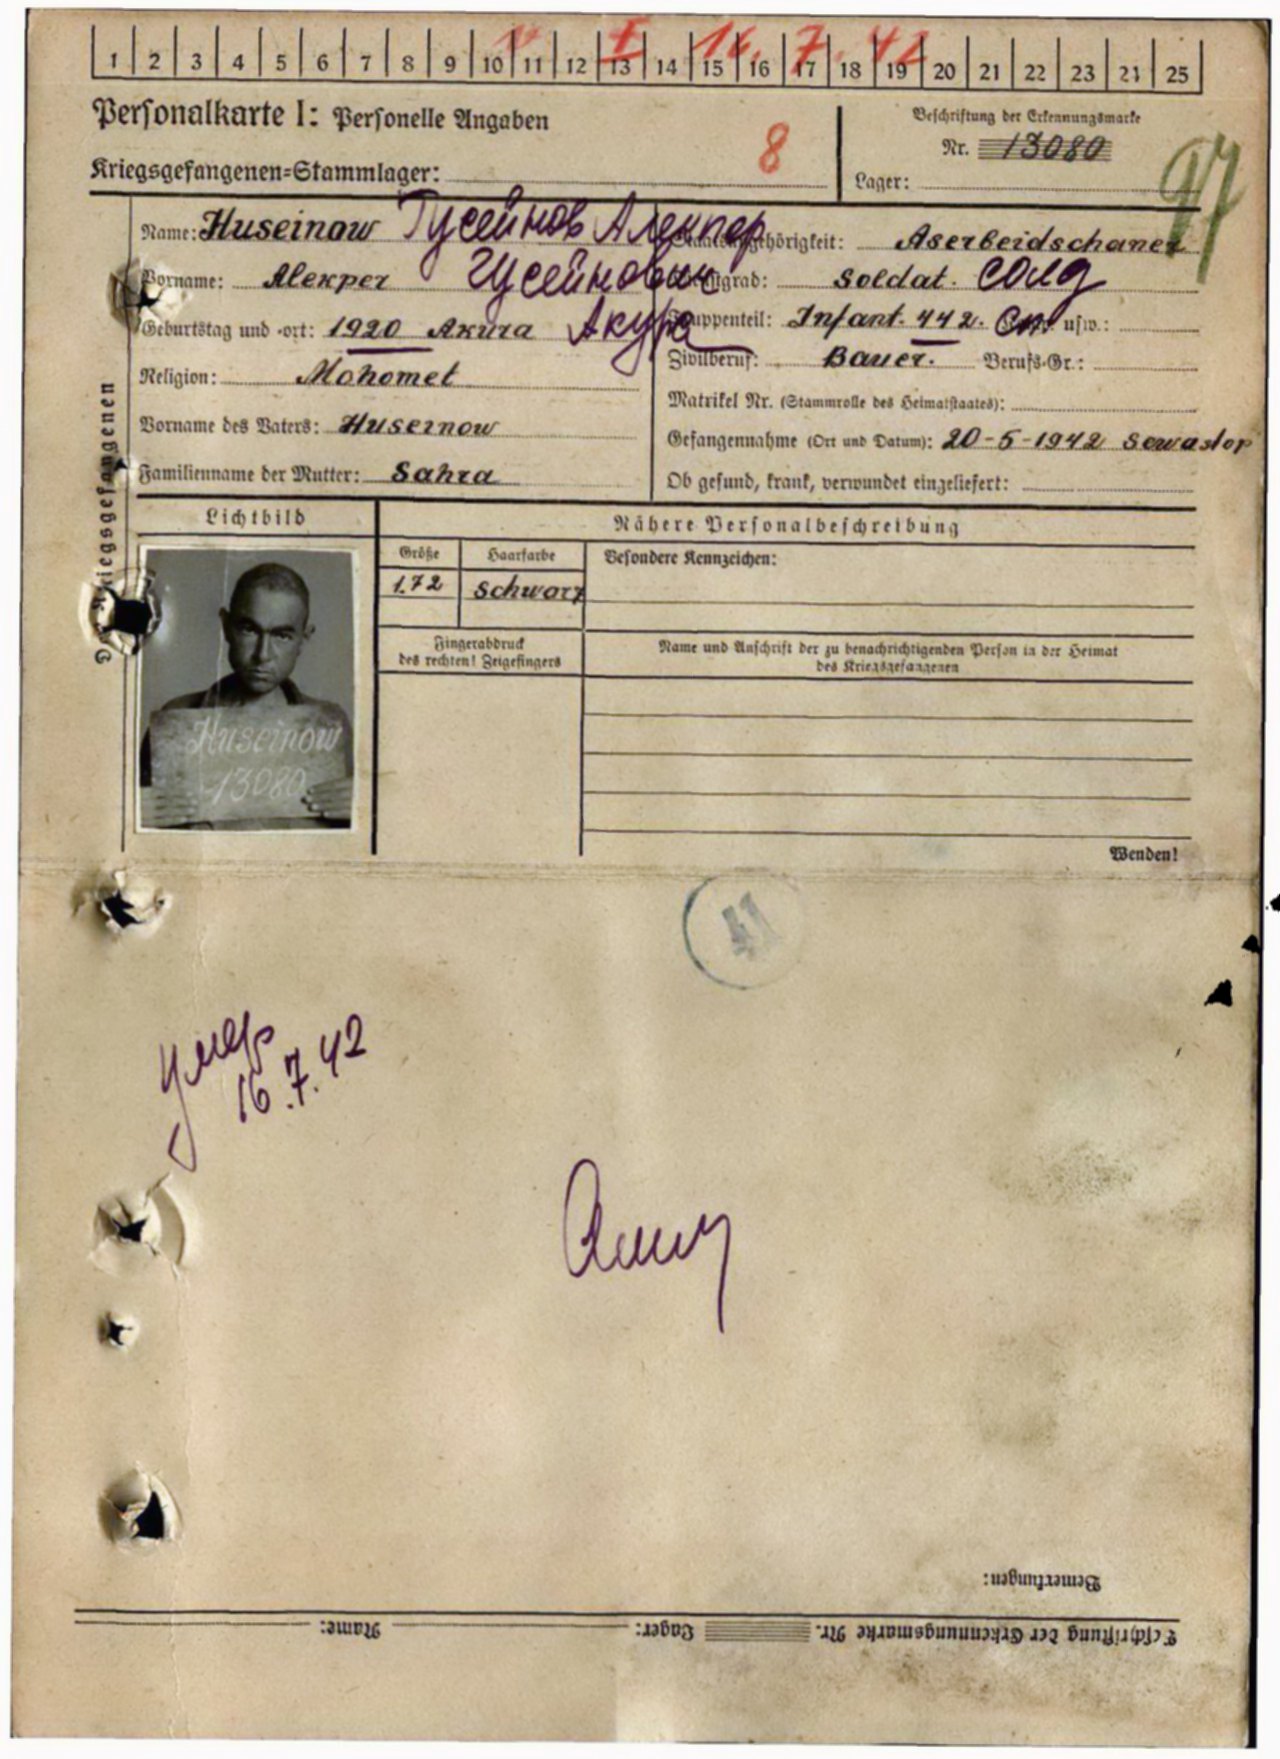 1 2 3 4 5 6 7 8 9 10 11 12 13 14 15 16 17 18 19 20 21 22 23 24 25
16. 7. 42
Personalkarte I: Personelle Angaben
Kriegsgefangenen=Stammlager:
8
Beschriftung der Erkennungsmarke
Nr. 13080
Lager:
97
Name: Huseinow Гусейнов Алекпер
Vorname: Alekper Гусейнович
Geburtstag und -ort: 1920 Акура
Religion: Mohomet
Vorname des Vaters: Huseinow
Familienname der Mutter: Sahra
Staatsangehörigkeit: Aserbeidschaner
Dienstgrad: Soldat. солд
Truppenteil: Infant. 442. сп usw.:
Zivilberuf: Bauer. Berufs-Gr.:
Matrikel Nr. (Stammrolle des Heimatstaates):
Gefangennahme (Ort und Datum): 20-5-1942 Sewastop
Ob gesund, krank, verwundet eingeliefert:
Des Kriegsgefangenen
Lichtbild
Nähere Personalbeschreibung
Größe Haarfarbe Besondere Kennzeichen:
1.72 schwarz
Fingerabdruck
des rechten! Zeigefingers
Name und Anschrift der zu benachrichtigenden Person in der Heimat
des Kriegsgefangenen
Huseinow
13080
Wenden!
41
умер
16.7.42
Bemerkungen:
Beschriftung der Erkennungsmarke Nr. Lager: Name: